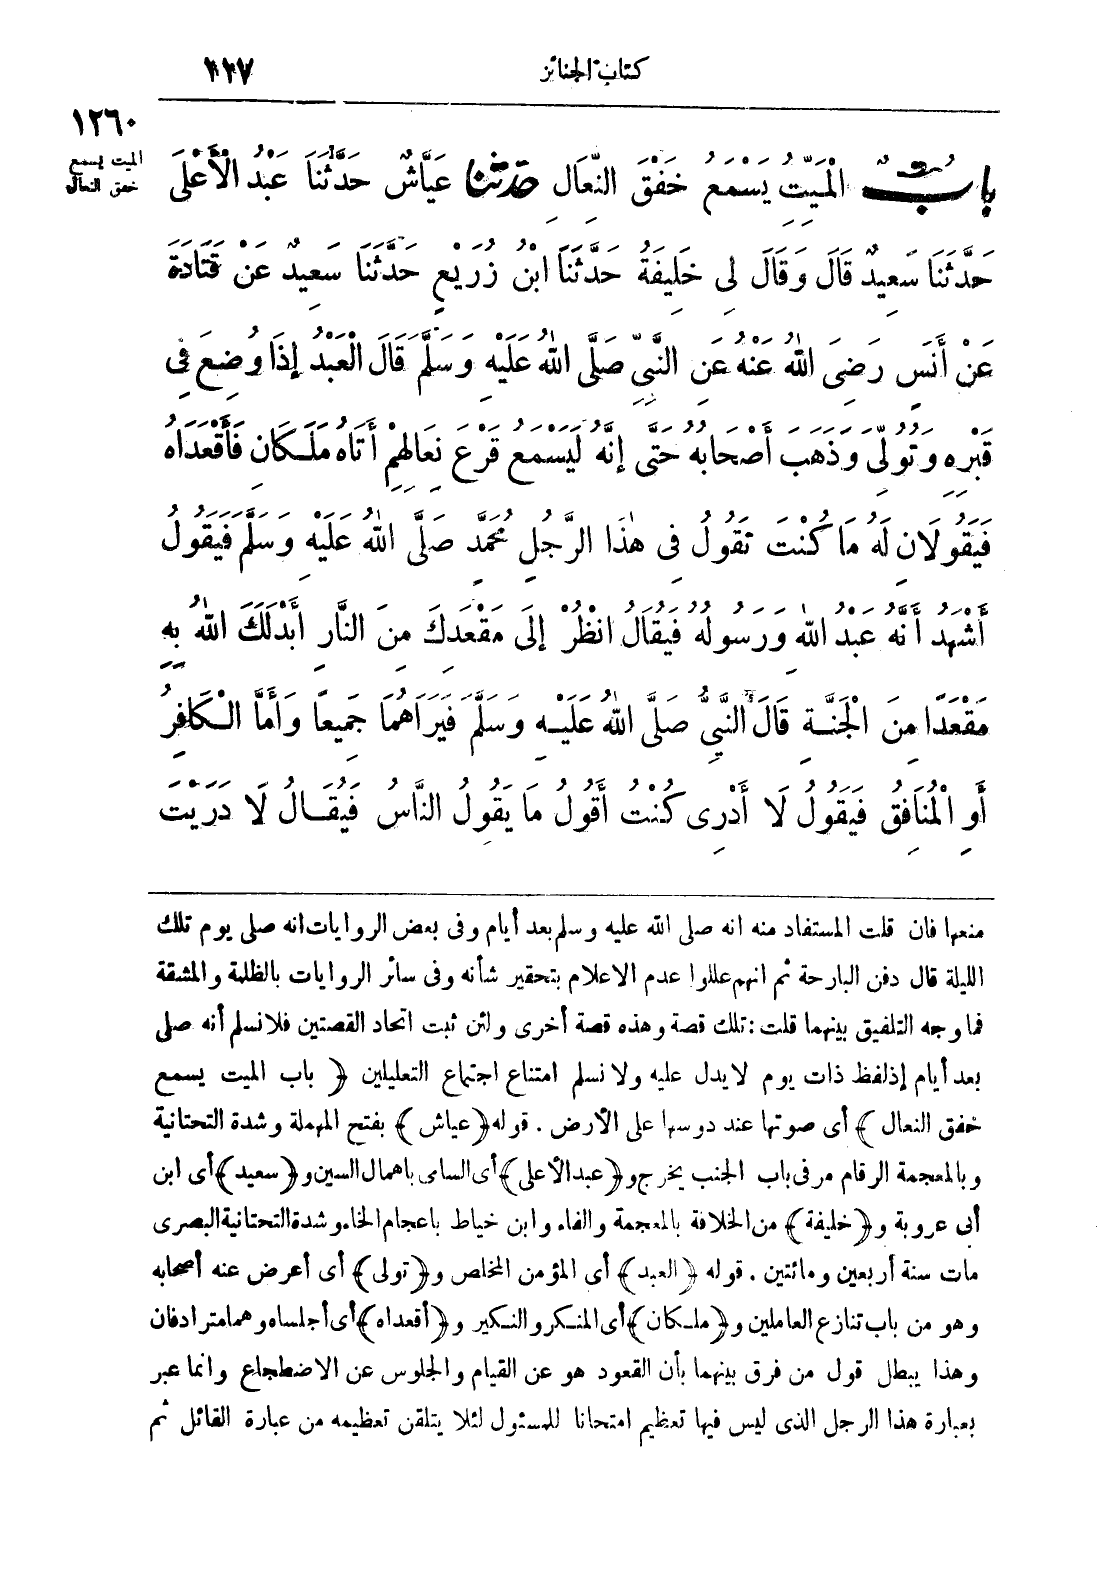 كتاب الجنائز
١١٧
١٢٦٠
الميت يسمع
خفق النعال
بابٌ الْمَيِّتُ يَسْمَعُ خَفْقَ النِّعَالِ حَدَّثَنَا عَيَّاشٌ حَدَّثَنَا عَبْدُ الْأَعْلَى
حَدَّثَنَا سَعِيدٌ قَالَ وَقَالَ لِى خَلِيفَةُ حَدَّثَنَا ابْنُ زُرَيْعٍ حَدَّثَنَا سَعِيدٌ عَنْ قَتَادَةَ
عَنْ أَنَسٍ رَضِىَ اللهُ عَنْهُ عَنِ النَّبِيِّ صَلَّى اللهُ عَلَيْهِ وَسَلَّمَ قَالَ الْعَبْدُ إِذَا وُضِعَ فِى
قَبْرِهِ وَتُوُلِّىَ وَذَهَبَ أَصْحَابُهُ حَتَّى إِنَّهُ لَيَسْمَعُ قَرْعَ نِعَالِهِمْ أَتَاهُ مَلَكَانِ فَأَقْعَدَاهُ
فَيَقُولَانِ لَهُ مَا كُنْتَ تَقُولُ فِى هٰذَا الرَّجُلِ مُحَمَّدٍ صَلَّى اللهُ عَلَيْهِ وَسَلَّمَ فَيَقُولُ
أَشْهَدُ أَنَّهُ عَبْدُ اللهِ وَرَسُولُهُ فَيُقَالُ انْظُرْ إِلَى مَقْعَدِكَ مِنَ النَّارِ أَبْدَلَكَ اللهُ بِهِ
مَقْعَدًا مِنَ الْجَنَّةِ قَالَ النَّبِيُّ صَلَّى اللهُ عَلَيْهِ وَسَلَّمَ فَيَرَاهُمَا جَمِيعًا وَأَمَّا الْكَافِرُ
أَوِ الْمُنَافِقُ فَيَقُولُ لَا أَدْرِى كُنْتُ أَقُولُ مَا يَقُولُ النَّاسُ فَيُقَالُ لَا دَرَيْتَ
منعها فان قلت المستفاد منه انه صلى الله عليه وسلم بعد أيام وفى بعض الروايات انه صلى يوم تلك
الليلة قال دفن البارحة ثم انهم عللوا عدم الاعلام بتحقير شأنه وفى سائر الروايات بالظلمة والمشقة
فما وجه التلفيق بينهما قلت : تلك قصة وهذه قصة أخرى ولئن ثبت اتحاد القصتين فلا نسلم أنه صلى
بعد أيام إذ لفظ ذات يوم لا يدل عليه ولا نسلم امتناع اجتماع التعليلين ﴿ باب الميت يسمع
خفق النعال ﴾ أى صوتها عند دوسها على الأرض . قوله ﴿عياش﴾ بفتح المهملة وشدة التحتانية
وبالمعجمة الرقام مر فى باب الجنب يخرج و﴿عبد الأعلى﴾ أى السامى باهمال السين و﴿سعيد﴾ أى ابن
أبى عروبة و﴿خليفة﴾ من الخلافة بالمعجمة والفاء وابن خياط باعجام الخاء وشدة التحتانية البصرى
مات سنة أربعين ومائتين . قوله ﴿العبد﴾ أى المؤمن المخلص و﴿تولى﴾ أى أعرض عنه أصحابه
وهو من باب تنازع العاملين و﴿ملكان﴾ أى المنكر والنكير و﴿أقعداه﴾ أى أجلساه وهما مترادفان
وهذا يبطل قول من فرق بينهما بأن القعود هو عن القيام والجلوس عن الاضطجاع وانما عبر
بعبارة هذا الرجل الذى ليس فيها تعظيم امتحانا للمسئول لئلا يتلقن تعظيمه من عبارة القائل ثم